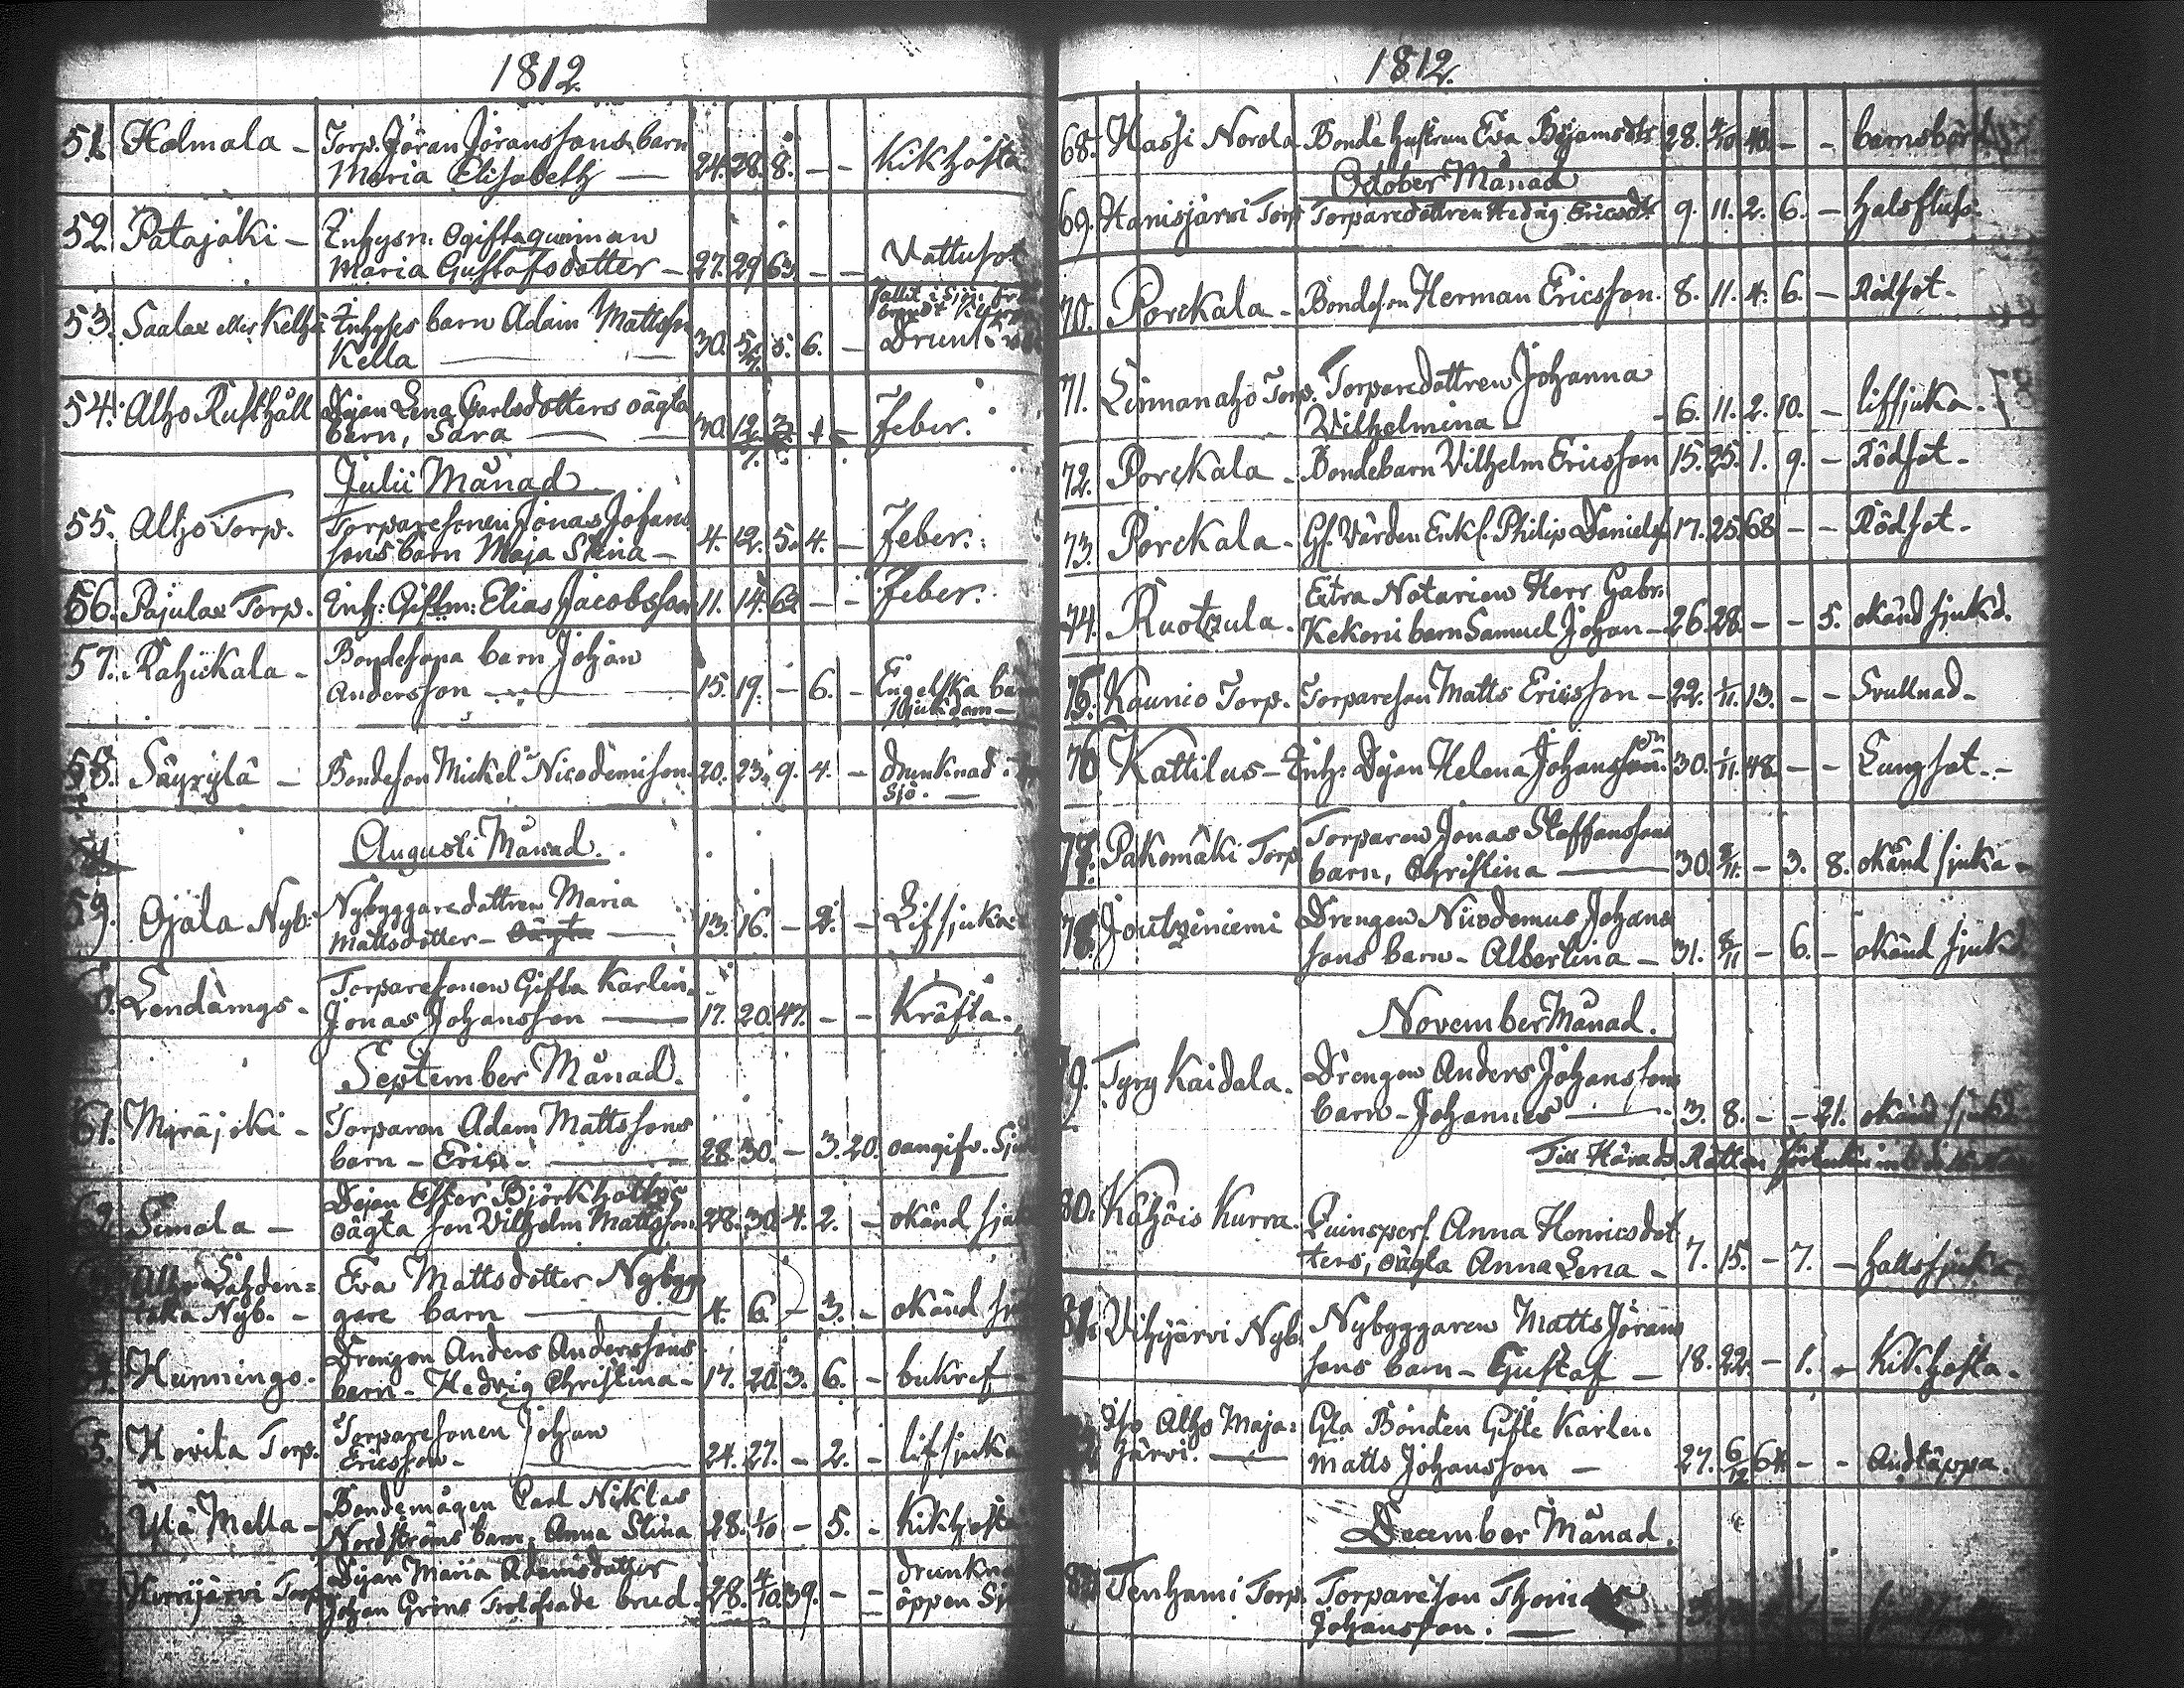 1812.
51. Holmala - Torp. Jöran Jöranssons barn
Maria Elisabeth — 24. 28. 8. - - Kikhosta
52. Patajoki - Inhysn: Ogifta quinnan
Maria Gustafsdotter - 27. 29. 63. - - Vattusot
53. Saalax eller Inhyses barn Adam Mattsson
Kella — 30. 5/7. 5. 6. - Drunk
fallit i Sjön
54. Alho Rusthåll Pigan Lena Carlsdotters oägta
barn, Sara — 30. 12/7. Feber.
Julii Månad
55. Alho Torp. Torparesonen Jonas Johans
sons barn Maja Stina - 4. 12. 5. 4. - Feber.
56. Pajulax Torp. Inh: Giftm: Elias Jacobsson 11. 14. 62. - - Feber.
57. Rahickala - Bondesons barn Johan
Andersson — 15. 19. - 6. - Engelska
sjukdom -
58. Säyrylä - Bondeson Mickel Nicodemison 20. 23. 9. 4. - drunknad i
Sjö. -
Augusti Månad.
59. Ojala Nyb: Nybyggaredottren Maria
Mattsdotter - oägta — 13. 16. - 2. - Lifsjuka
Lendämgs - Torparesonen Gifta Karlen
Jonas Johansson — 17. 20. 47. - - Kräfta.
September Månad.
61. Myräjoki - Torparen Adam Mattssons
barn - Eric - 28. 30. - 3. 20. oangifv. Sjuk
62. Simola - Pigan Ester Björkhottys
oägta son Vilhelm Mattsson 28. 30. 4. 2. - okänd sjuk
Alho Lahden=
taka Nyb. - Eva Mattsdotter Nybygg
gare barn — 4. 6. - 3. - okänd
Hunnings - Drengen Anders Anderssons
barn - Hedvig Christina - 17. 20. 3. 6. - bukref
5. Hovila Torp. Torparesonen Johan
Ericsson - 24. 27. - 2. - lifsjuka
Ylä Mella - Bondemågen Carl Niklas
Nordströms barn, Anna Stina 28. 1/10 - 5. - Kikhosta
Torp Pigan Maria Adamsdotter
Johan Gröns Trolofvade brud. 28. 4/10. 39. - - drunkna
öppen Sjö
1812.
68. Hassi Norola Bonde hustrun Eva Benjamsdtr 28. 4/10 40. - - barnsbörd
October Månad
69. Hanisjärvi Torp Torparedottren Hedvig Ericsdtr 9. 11. 2. 6. - halsfluss.
70. Porckala - Bondeson Herman Ericsson. 8. 11. 4. 6. - Rödsot -
71. Linnanaho Torp. Torparedottren Johanna
Vilhelmina - 6. 11. 2. 10. - lifsjuka.
72. Porckala - Bondebarn Vilhelm Ericsson 15. 25. 1. 9. - Rödsot -
73. Porckala - Gl. Värden Enkl. Philip Danielss 17. 25. 68 - - Rödsot -
74. Ruotzula. Extra Notarien Herr Gabr.
Kekoni barn Samuel Johan - 26. 28. - - 5. okänd sjukd.
75. Kaunio Torp. Torpareson Matts Ericsson - 22. 1/11. 13. - - Svullnad -
76 Kattilus - Inh: Pigan Helena Johansson 30. 1/11. 48. - - Lungsot. -
77. Pakomäki Torp Torparen Jonas Staffanssons
barn, Christina — 30. 8/11. - 3. 8. okänd sjuka -
78. Joutziniemi Drengen Nicodemus Johans
sons barn - Albertina - 31. 8/11 - 6. - okänd sjukd
November Månad.
79. Tyry Kaidala. Drengen Anders Johanssons
barn - Johannes — 3. 8. - - 21. okänd sjukd.
Till Härads Rätten
80. Kähöis Kurra. Quinspers. Anna Henricsdot
ters, oägta Anna Lena - 7. 15. - 7. - halssjuka
81. Vihjärvi Nyb. Nybyggaren Matts Jörans
sons barn - Gustaf - 18. 22. - 1. - Kikhosta.
Iso Alho Maja=
järvi. — Gla Bonden Gifte Karlen
Matts Johansson - 27. 6/12 64. - - Andtäppa.
December Månad.
83. Tenhami Torp. Torpareson Thomas
Johansson. —